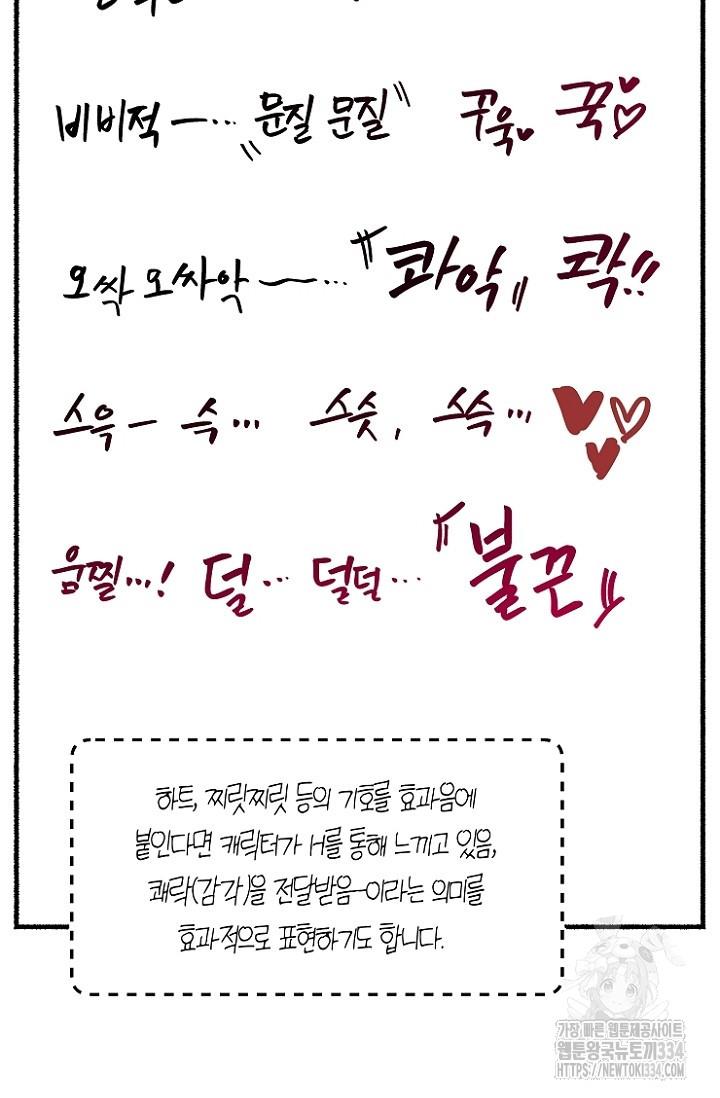 비비적ー… "문질 문질" 꾸욱♥ 꾹♥♡
오싹 오싸악 ~… "콰악" 콱!!
스윽ー 슥… 스슷, 쓱… ♥♡♥
움찔…! 덜… 덜덕… "불끈"
하트, 찌릿찌릿 등의 기호를 효과음에
붙인다면 캐릭터가 H를 통해 느끼고 있음,
쾌락(감각)을 전달받음-이라는 의미를
효과적으로 표현하기도 합니다.
가장 빠른 웹툰제공사이트
웹툰왕국뉴토끼334
HTTPS://NEWTOKI334.COM